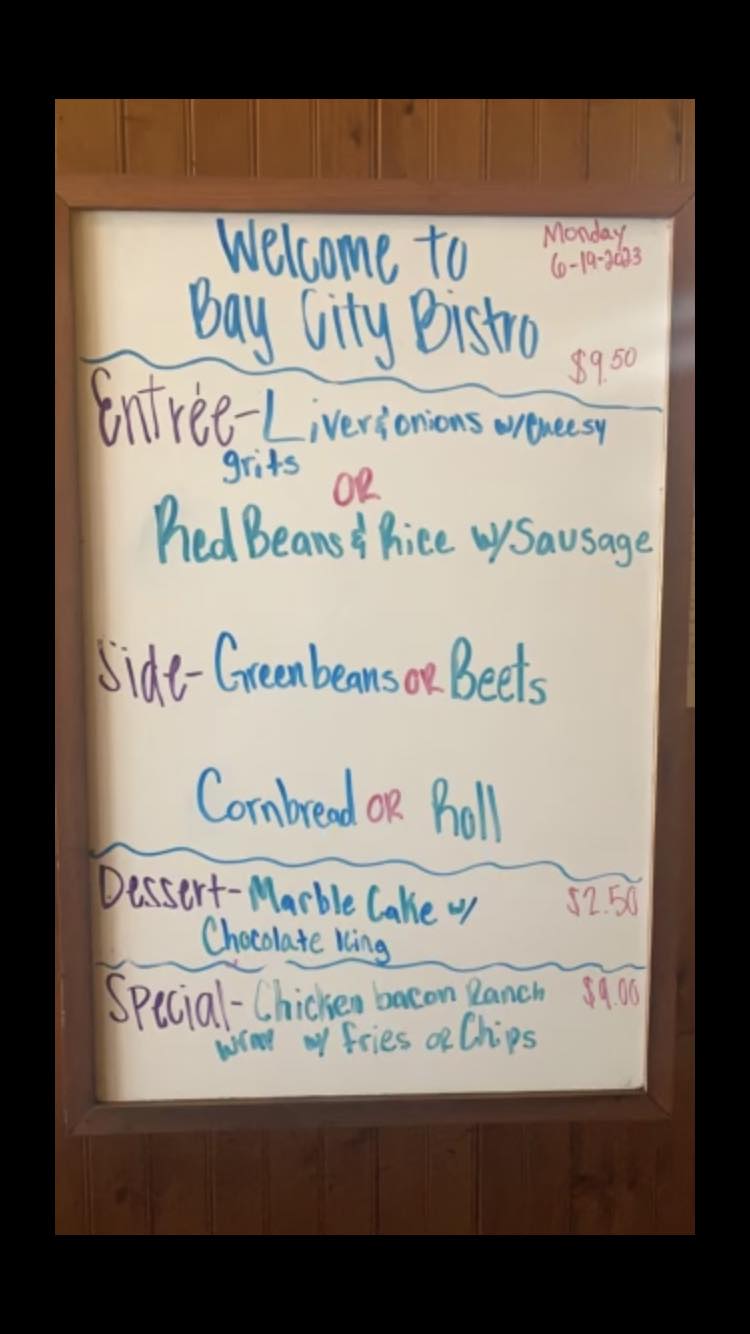 Welcome to
Monday
6-19-2023
Bay City Bistro
$9.50
Entrée-Liver & onions w/Cheesy
grits
OR
Red Beans & Rice w/Sausage
Side-Greenbeans OR Beets
Cornbread OR Roll
Dessert-Marble Cake w/
$2.50
Chocolate Icing
Special-Chicken bacon Ranch
$9.00
wrap w/ fries or Chips